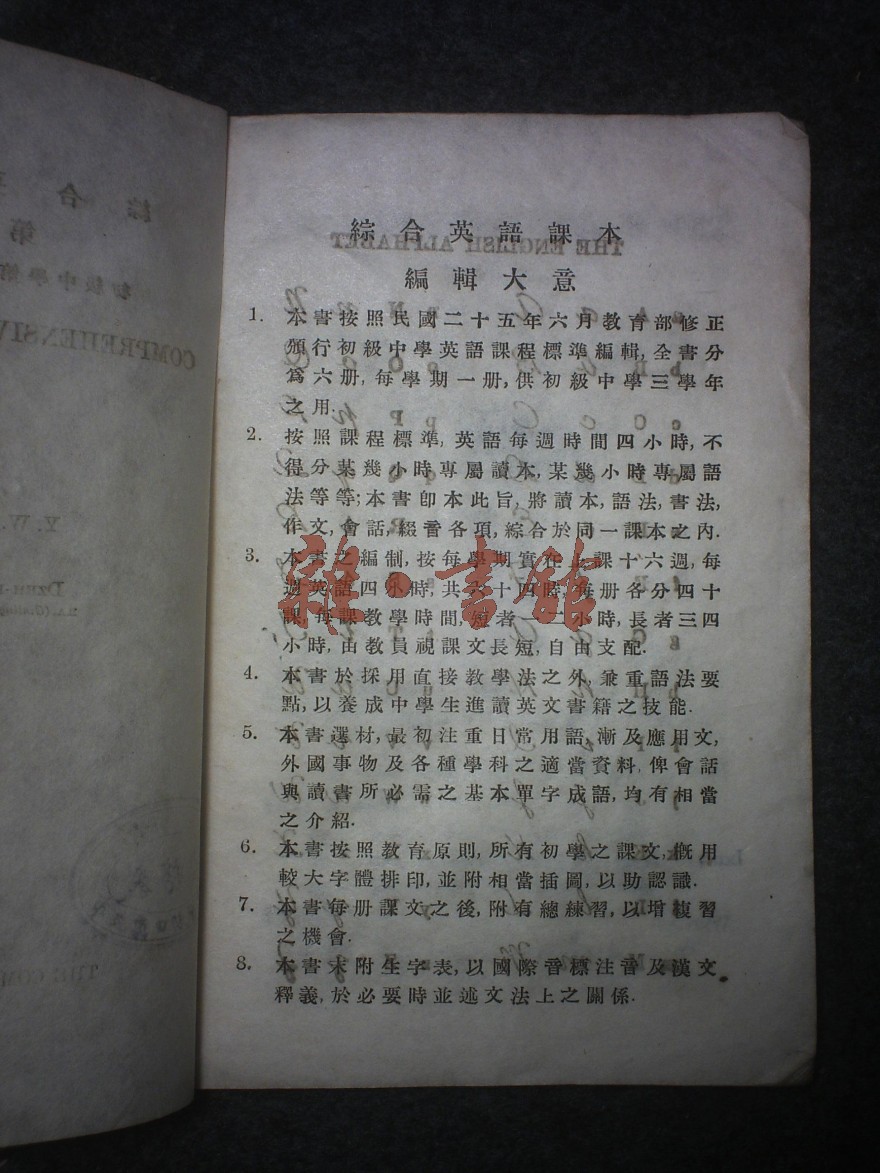 綜合英語課本
編輯大意
1. 本書按照民國二十五年六月教育部修正
頒行初級中學英語課程標準編輯,全書分
爲六册,每學期一册,供初級中學三學年
之用.
2. 按照課程標準,英語每週時間四小時,不
得分某幾小時專屬讀本,某幾小時專屬語
法等等;本書卽本此旨,將讀本,語法,書法,
作文,會話,綴音各項,綜合於同一課本之內.
3. 本書之編制,按每學期實在上課十六週,每
週英語四小時,共六十四時,每册各分四十
課,每課教學時間,短者一二小時,長者三四
小時,由教員視課文長短,自由支配.
4. 本書於採用直接教學法之外,兼重語法要
點,以養成中學生進讀英文書籍之技能.
5. 本書選材,最初注重日常用語,漸及應用文,
外國事物及各種學科之適當資料,俾會話
與讀書所必需之基本單字成語,均有相當
之介紹.
6. 本書按照教育原則,所有初學之課文,槪用
較大字體排印,並附相當插圖,以助認識.
7. 本書每册課文之後,附有總練習,以增複習
之機會.
8. 本書末附生字表,以國際音標注音及漢文
釋義,於必要時並述文法上之關係.
雜·書館